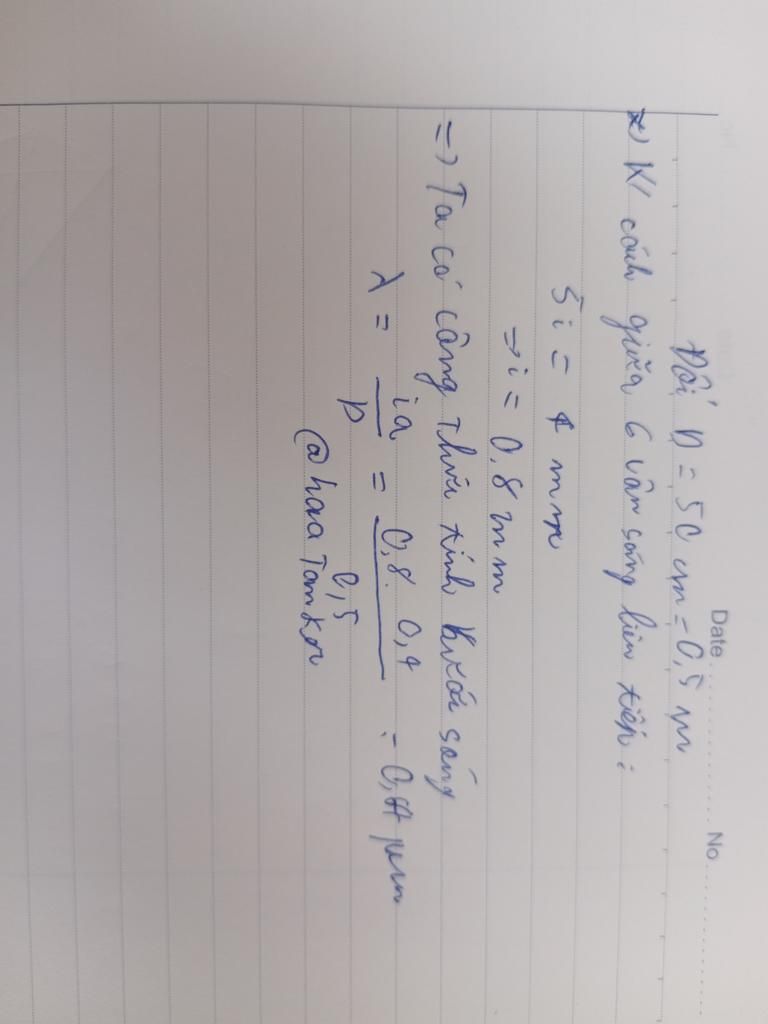 Date No
Đổi D = 50 cm = 0,5 m
*) K/ cách giữa 6 vân sáng liên tiếp:
5i = 4 mm
=> i = 0,8 mm
=> Ta có công thức tính bước sóng
λ = ia / D = 0,8. 0,4 / 0,5 = 0,64 µm